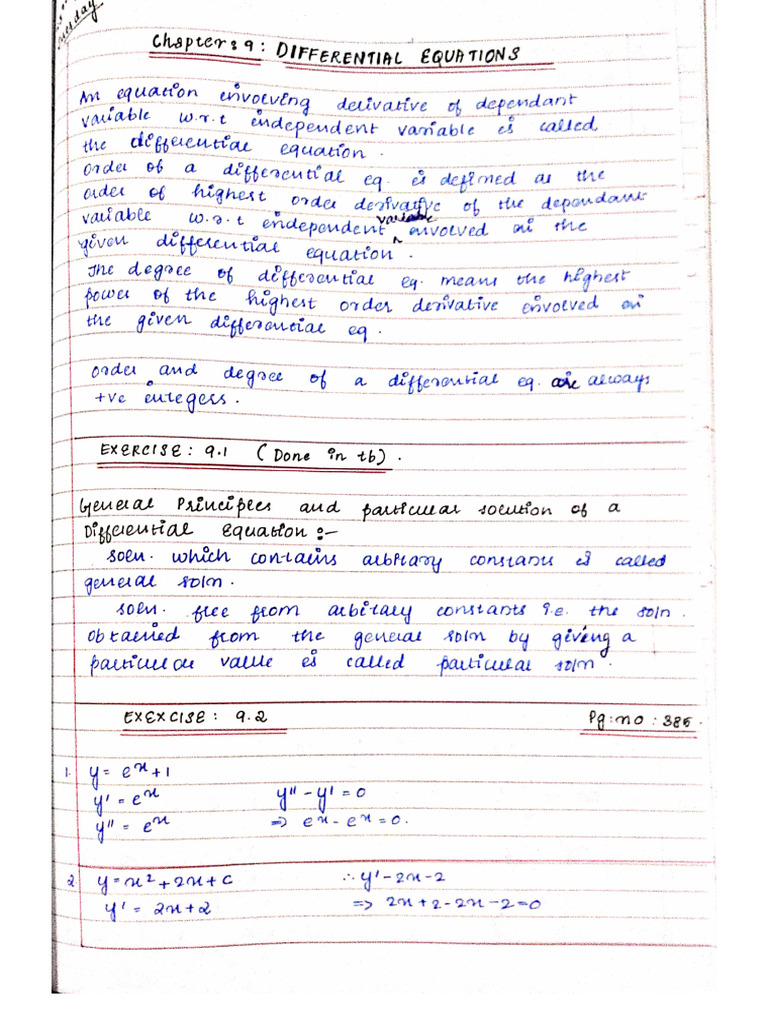 Tuesday
Chapter: 9: DIFFERENTIAL EQUATIONS
An equation involving derivative of dependant
variable w.r.t independent variable is called
the differential equation.
Order of a differential eq. is defined as the
order of highest order derivative of the dependant
variable w.r.t independent variable involved in the
given differential equation.
The degree of differential eq. means the highest
power of the highest order derivative involved in
the given differential eq.
Order and degree of a differential eq. are always
+ve integers.
EXERCISE: 9.1 (Done in tb).
General Principles and particular solution of a
Differential Equation :-
Soln. which contains arbitary constants is called
general soln.
Soln. free from arbitary constants i.e. the soln.
obtained from the general soln by giving a
particular value is called particular soln.
EXEXCISE: 9.2 Pg:no: 385.
1. y = e^x + 1
y' = e^x y'' - y' = 0
y'' = e^x => e^x - e^x = 0.
2. y = x² + 2x + C ∴ y' - 2x - 2
y' = 2x + 2 => 2x + 2 - 2x - 2 = 0